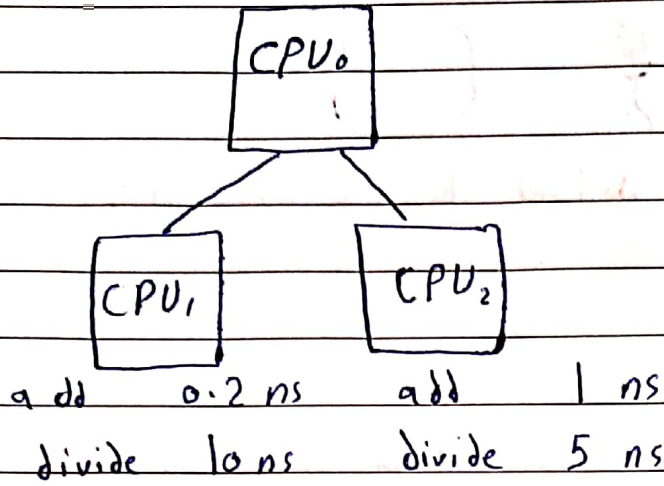 CPU₀
CPU₁ CPU₂
add 0.2 ns add 1 ns
divide 10 ns divide 5 ns